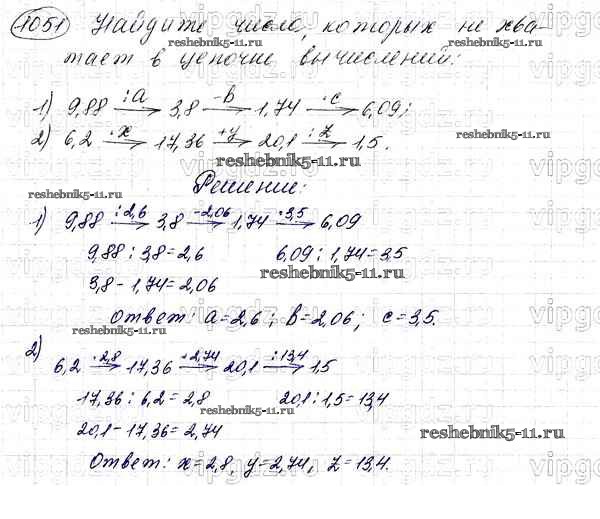 1051 Найдите числа, которых не хва-
тает в цепочке вычислений:
1) 9,88 :a→ 3,8 -b→ 1,74 ·c→ 6,09;
2) 6,2 ·x→ 17,36 +y→ 20,1 :z→ 1,5.
Решение:
1) 9,88 :2,6→ 3,8 -2,06→ 1,74 ·3,5→ 6,09
9,88 : 3,8 = 2,6 6,09 : 1,74 = 3,5
3,8 - 1,74 = 2,06
Ответ: a = 2,6; b = 2,06; c = 3,5.
2) 6,2 ·2,8→ 17,36 +2,74→ 20,1 :13,4→ 1,5
17,36 : 6,2 = 2,8 20,1 : 1,5 = 13,4
20,1 - 17,36 = 2,74
Ответ: x = 2,8, y = 2,74, z = 13,4.
reshebnik5-11.ru
reshebnik5-11.ru
reshebnik5-11.ru
reshebnik5-11.ru
reshebnik5-11.ru
reshebnik5-11.ru
reshebnik5-11.ru
reshebnik5-11.ru